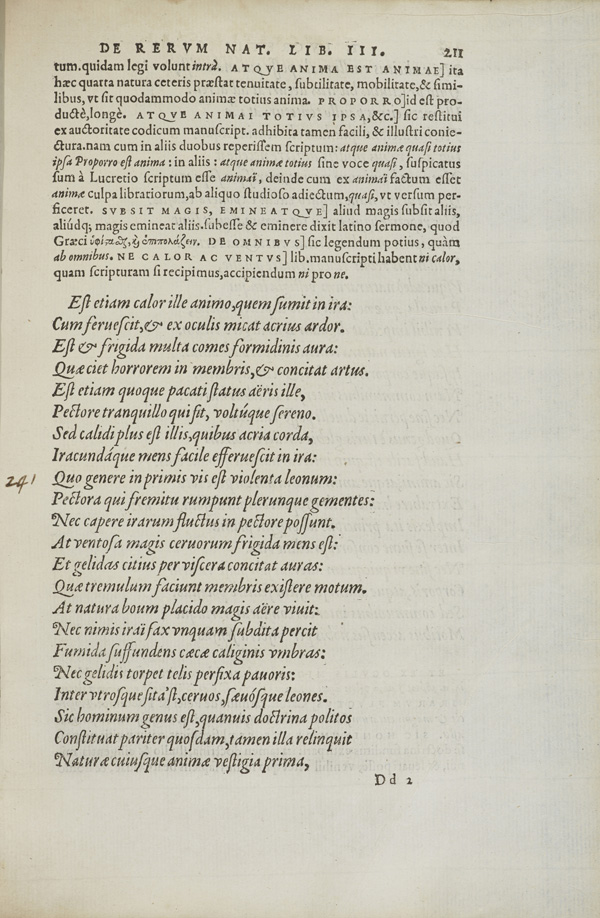 DE RERVM NAT. LIB. III. 211
tum. quidam legi volunt intrà. ATQVE ANIMA EST ANIMAE] ita
hæc quarta natura ceteris præstat tenuitate, subtilitate, mobilitate, & simi-
libus, vt sit quodammodo animæ totius anima. PROPORRO] id est pro-
ductè, longè. ATQVE ANIMAI TOTIVS IPSA, &c.] sic restitui
ex auctoritate codicum manuscript. adhibita tamen facili, & illustri conie-
ctura. nam cum in aliis duobus reperissem scriptum: atque animæ quasi totius
ipsa Proporro est anima: in aliis: atque animæ totius sine voce quasi, suspicatus
sum à Lucretio scriptum esse animaï, deinde cum ex animaï factum esset
animæ culpa librariorum, ab aliquo studioso adiectum, quasi, vt versum per-
ficeret. SVBSIT MAGIS, EMINEATQVE] aliud magis subsit aliis,
aliúdq; magis emineat aliis. subesse & eminere dixit latino sermone, quod
Græci DE OMNIBVS] sic legendum potius, quàm
ab omnibus. NE CALOR AC VENTVS] lib. manuscripti habent ni calor,
quam scripturam si recipimus, accipiendum ni pro ne.
Est etiam calor ille animo, quem sumit in ira:
Cum feruescit, & ex oculis micat acrius ardor.
Est & frigida multa comes formidinis aura:
Quæ ciet horrorem in membris, & concitat artus.
Est etiam quoque pacati status aëris ille,
Pectore tranquillo qui fit, voltúque sereno.
Sed calidi plus est illis, quibus acria corda,
Iracundáque mens facile efferuescit in ira:
241 Quo genere in primis vis est violenta leonum:
Pectora qui fremitu rumpunt plerunque gementes:
Nec capere irarum fluctus in pectore possunt.
At ventosa magis ceruorum frigida mens est:
Et gelidas citius per viscera concitat auras:
Quæ tremulum faciunt membris existere motum.
At natura boum placido magis aëre viuit:
Nec nimis iraï fax vnquam subdita percit
Fumida suffundens cæcæ caliginis vmbras:
Nec gelidis torpet telis perfixa pauoris:
Inter vtrosque sita'st, ceruos, sæuósque leones.
Sic hominum genus est, quanuis doctrina politos
Constituat pariter quosdam, tamen illa relinquit
Naturæ cuiusque animæ vestigia prima,
Dd 2